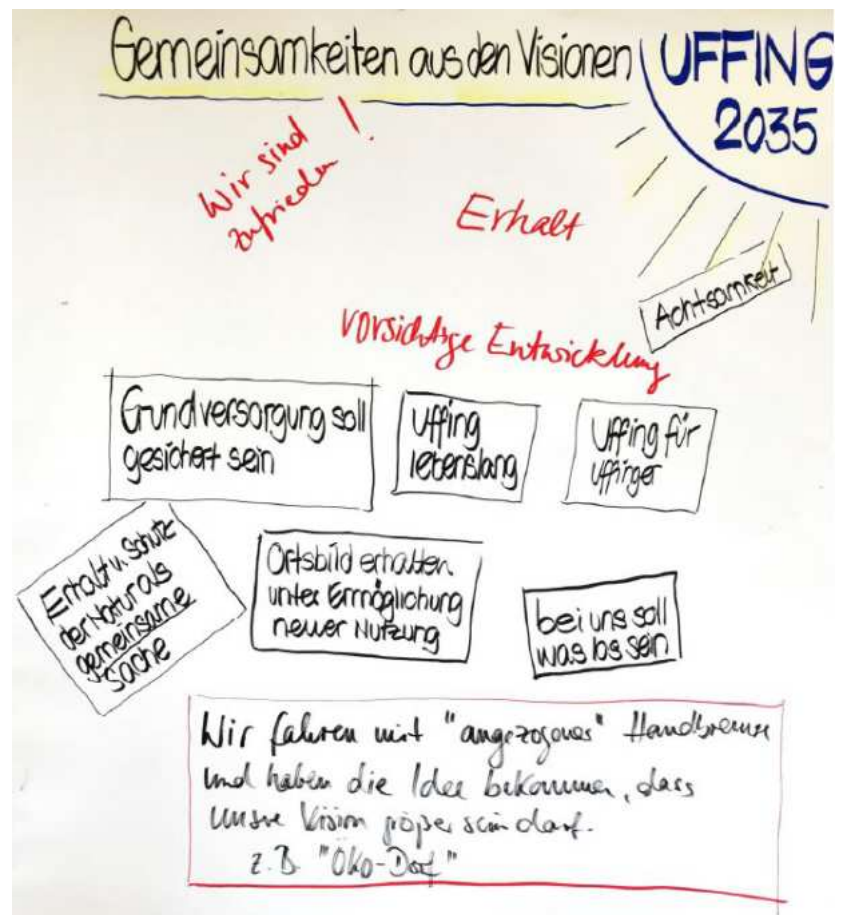 Gemeinsamkeiten aus den Visionen
UFFING
2035
Wir sind
zufrieden !
Erhalt
Achtsamkeit
vorsichtige Entwicklung
Grundversorgung soll
gesichert sein
Uffing
lebenslang
Uffing für
Uffinger
Erhalt u. Schutz
der Natur als
gemeinsame
Sache
Ortsbild erhalten
unter Ermöglichung
neuer Nutzung
bei uns soll
was los sein
Wir fahren mit "angezogener" Handbremse
und haben die Idee bekommen, dass
unsre Vision größer sein darf.
z.B. "Öko-Dorf"